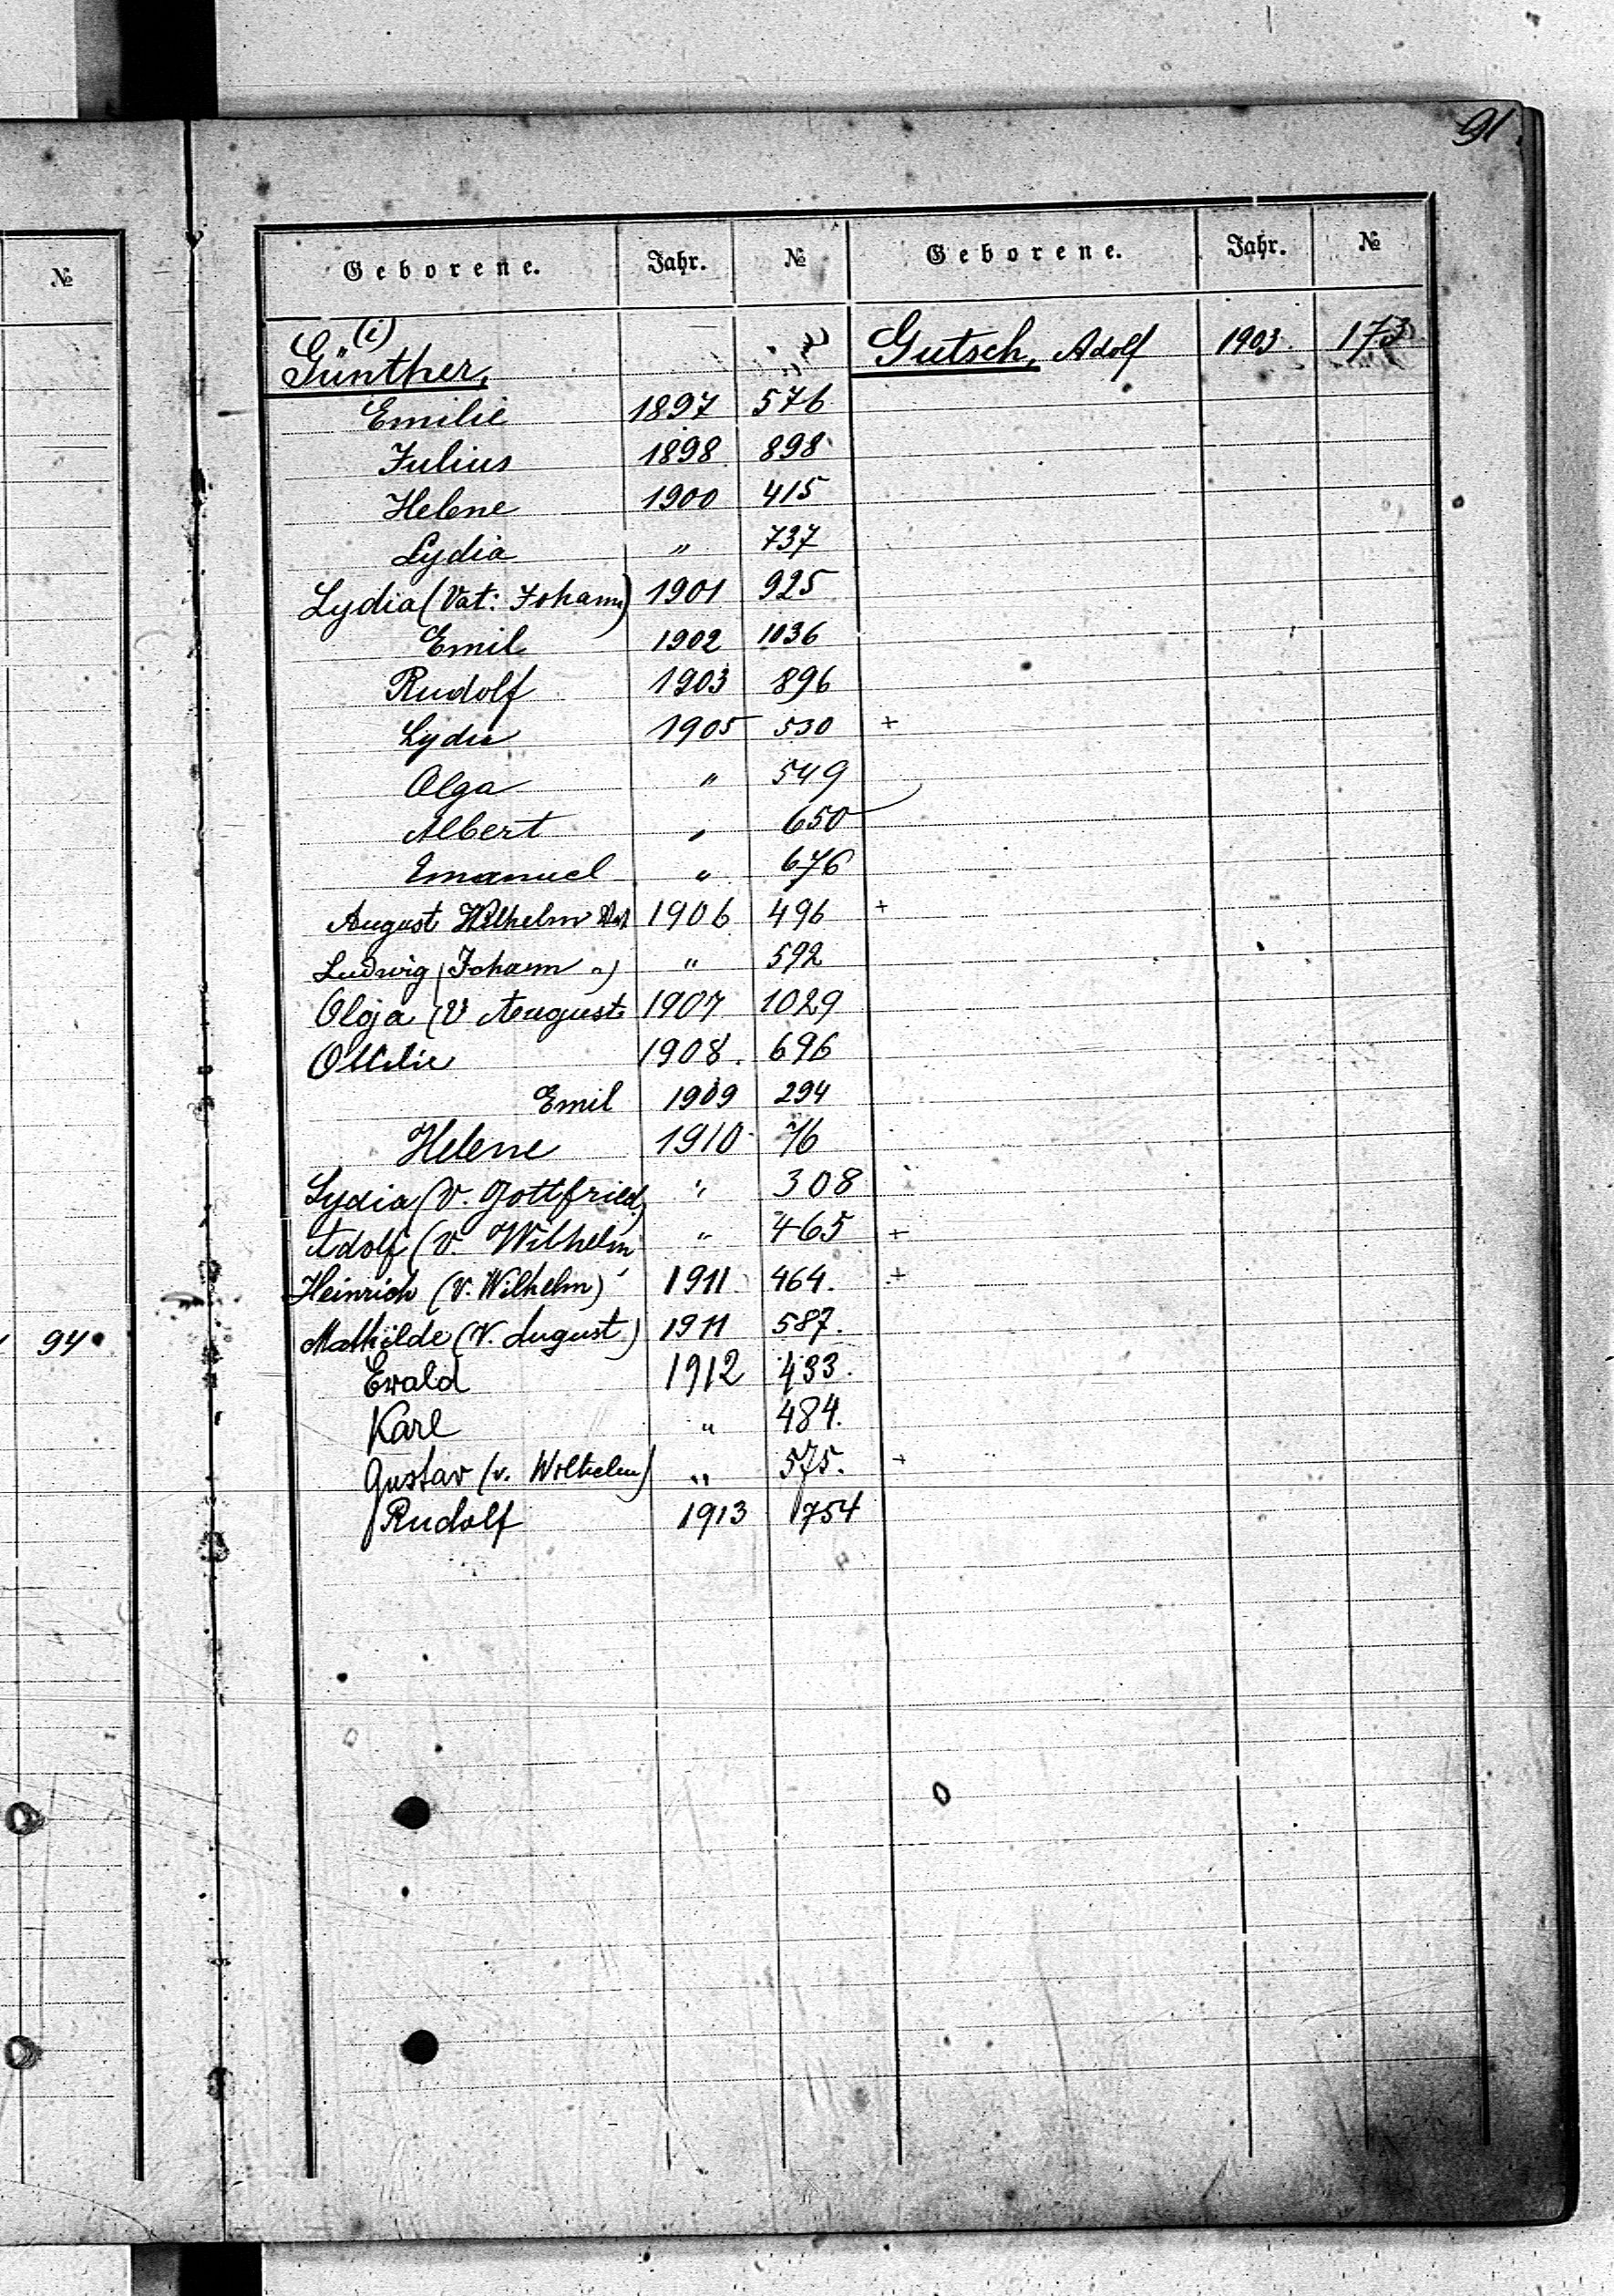 91
№
Geborene. Jahr. № Geborene. Jahr. №
(i)
Günther, Gutsch, Adolf 1903. 173
Emilie 1897 576
Julius 1898 898
Helene 1900 415
Lydia " 737
Lydia (Vat: Johann) 1901 925
Emil 1902 1036
Rudolf 1903 896
Lydia 1905 530 +
Olga " 549
Albert " 650
Emanuel " 676
August Wilhelm 1906 496 +
Ludwig (Johann ") " 592
Olga (V August 1907 1029
Ottilie 1908. 696
Emil 1909 294
Helene 1910 76
Lydia (V. Gottfried) " 308
Adolf (V. Wilhelm " 465 +
Heinrich (V. Wilhelm) 1911 464. +
94 Mathilde (V. August) 1911 587.
Ewald 1912 433.
Karl " 484.
Gustav (v. Wilhelm) " 575. +
Rudolf 1913 754